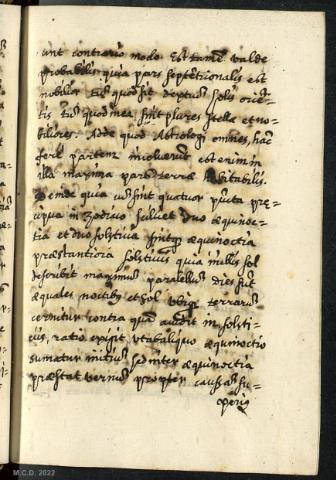 unt contrario modo Est tamē valde
probabilis quia pars septētrionalis est
nobilior tū quod sit dextra solis oriē-
tis tū quod in ea sint plures stellæ et no-
biliores. Adde quod Astrologi omnes, hāc
ferè partem incoluerūt est enim in
illa maxima pars terræ habitabilis.
Deinde quia cū sint quatuor pūcta præ-
cipua in Zodiaco scilicet duo æquinoc-
tia et duo solstitia sintq æquinoctia
præstantiora solstitiis quia in illis sol
describit maximus parallelus dies sūt
æquales noctibus et sol ubiq terrarū
cernitur contra quā accidit in solsti-
tiis, ratio exigit, ut ab aliquo æquinoctio
sumatur initiū sed inter æquinoctia
præstat vernus propter causas su-
periq
M.C.D. 2022